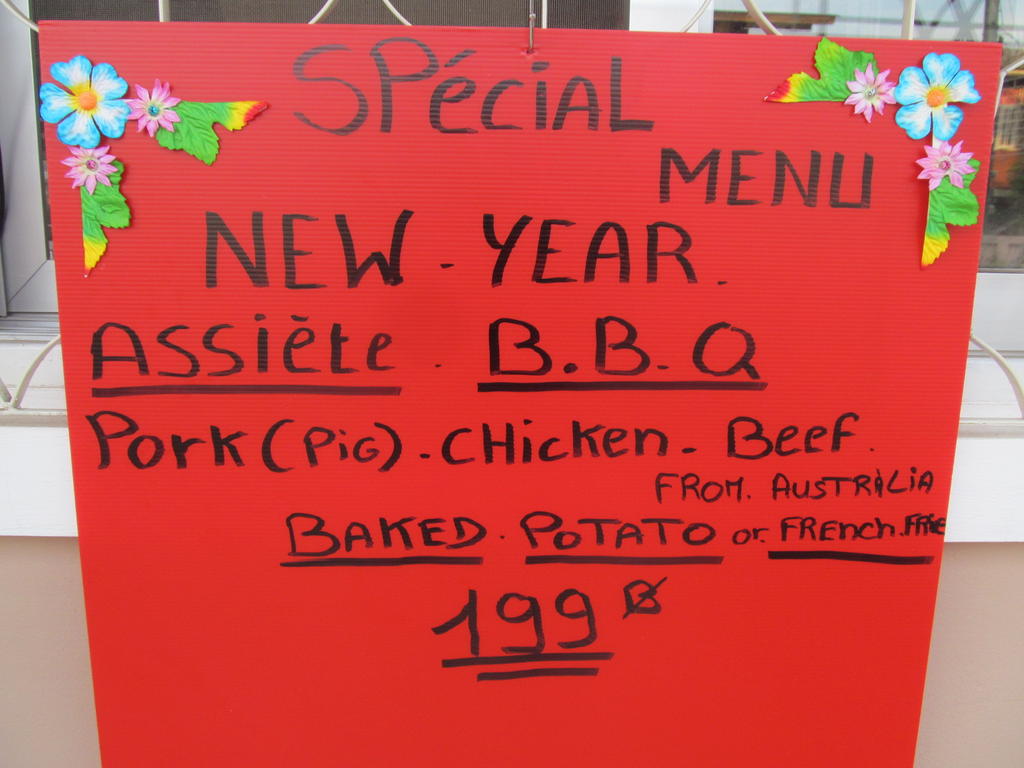 SPéciAL
MENU
NEW - YEAR.
ASSiète. B.B.Q
Pork (PiG). CHicken - Beef.
FROM. AUSTRÀLiA
BAKED. POTATO or FRench.FRie
199 ฿